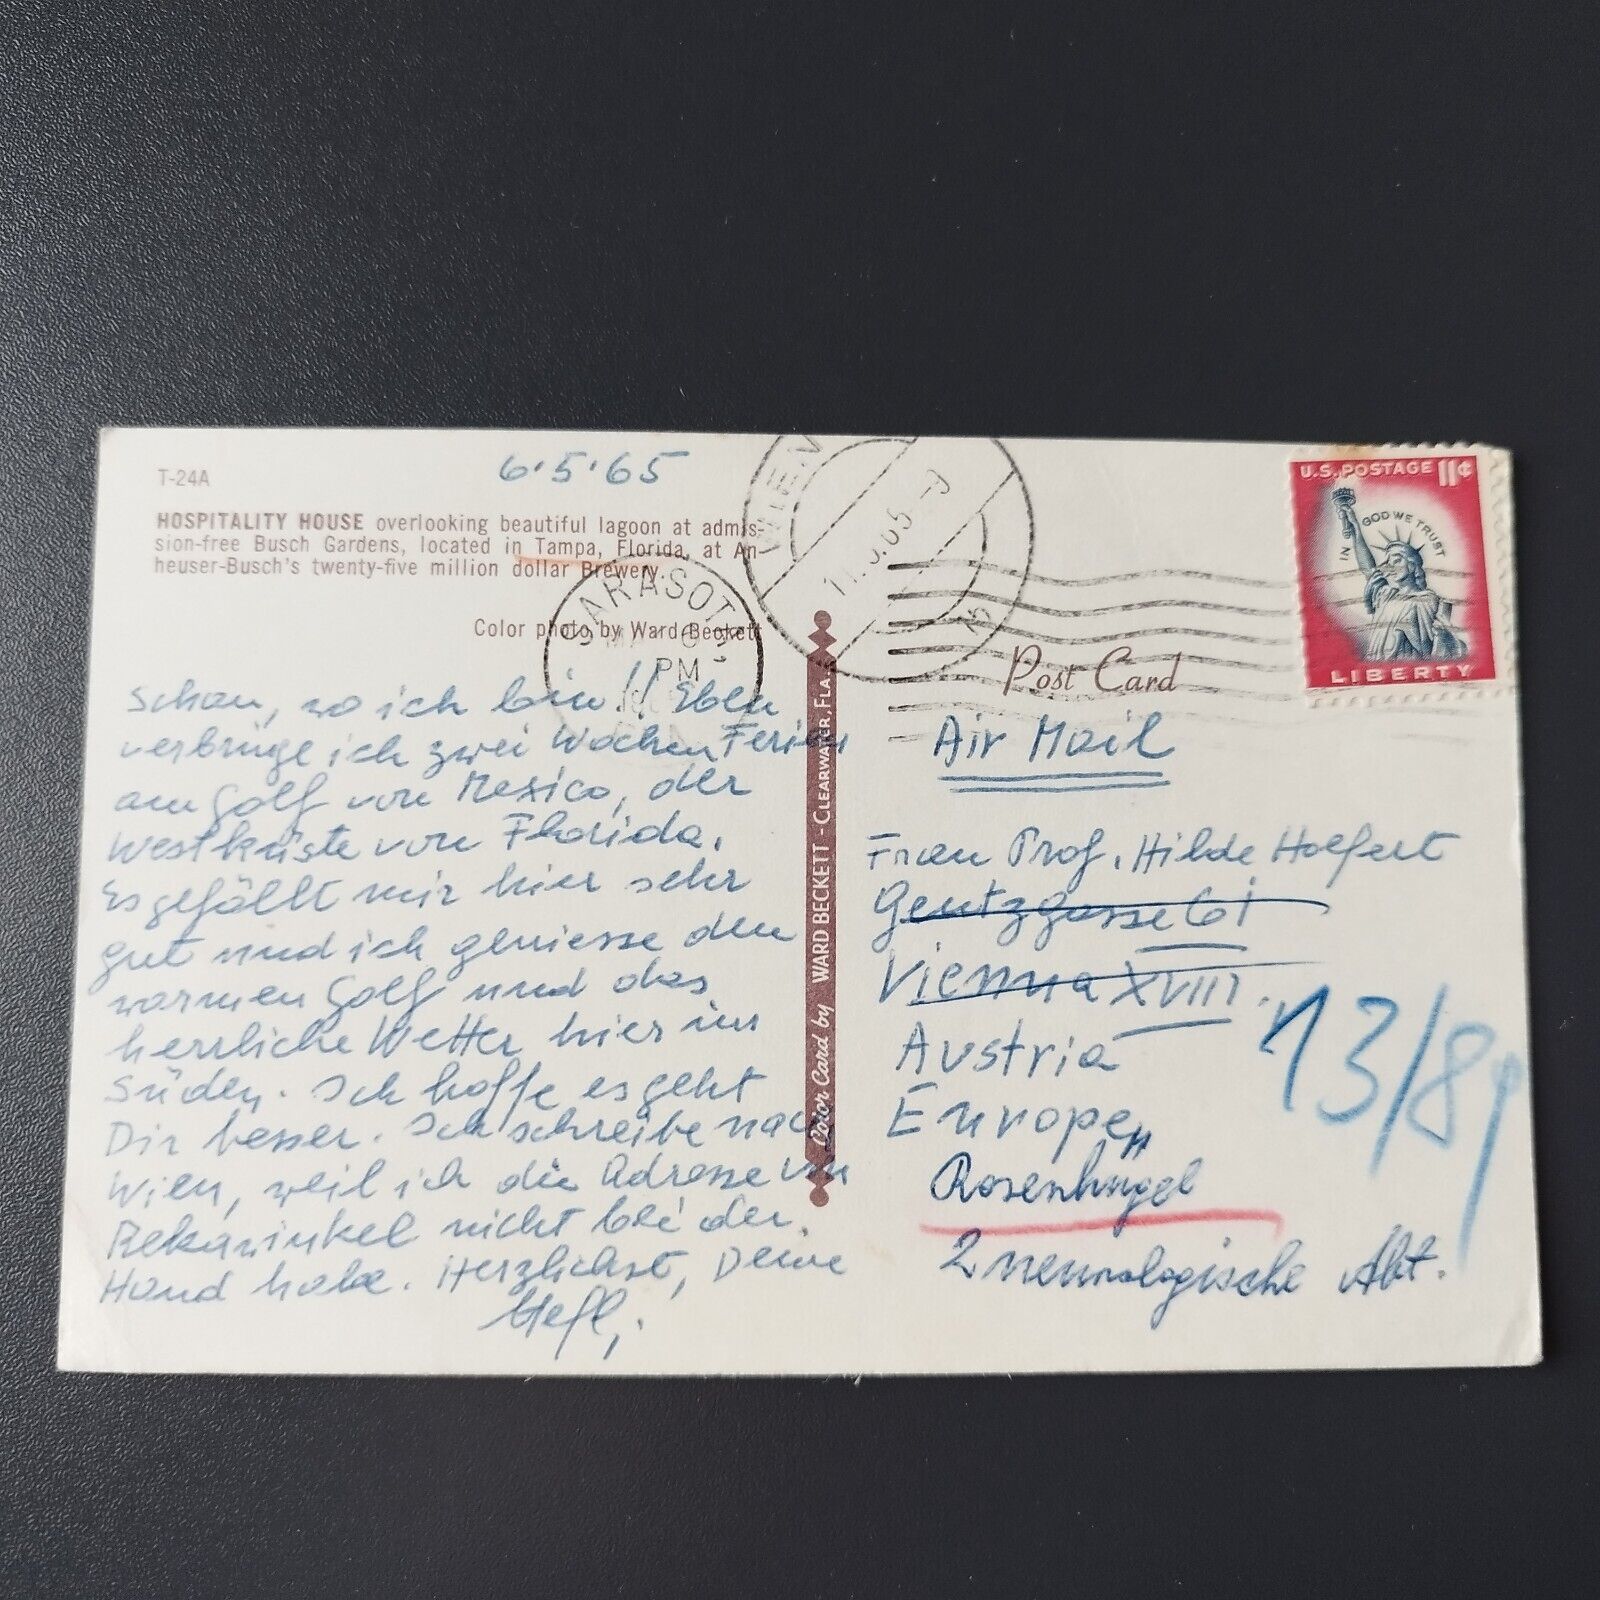 T-24A
6.5.65
HOSPITALITY HOUSE overlooking beautiful lagoon at admis-
sion-free Busch Gardens, located in Tampa, Florida, at An-
heuser-Busch's twenty-five million dollar Brewery.
Color photo by Ward Beckett
Schau, wo ich bin!! Eben
verbringe ich zwei Wochen Ferien
am Golf von Mexico, der
Westküste von Florida.
Es gefällt mir hier sehr
gut und ich geniesse den
warmen Golf und das
herrliche Wetter hier im
Süden. Ich hoffe es geht
Dir besser. Ich schreibe nach
Wien, weil ich die Adresse von
Rekawinkel nicht bei der
Hand habe. Herzlichst, Deine
SARASOTA
PM
Color Card by WARD BECKETT - CLEARWATER, FLA.
WIEN
U.S. POSTAGE 11¢
IN GOD WE TRUST
LIBERTY
Post Card
Air Mail
Frau Prof. Hilde Holfert
Gentzgasse 61
Vienna XVIII.
Austria
Europe
Rosenhügel
2 neurologische Abt.
13/8